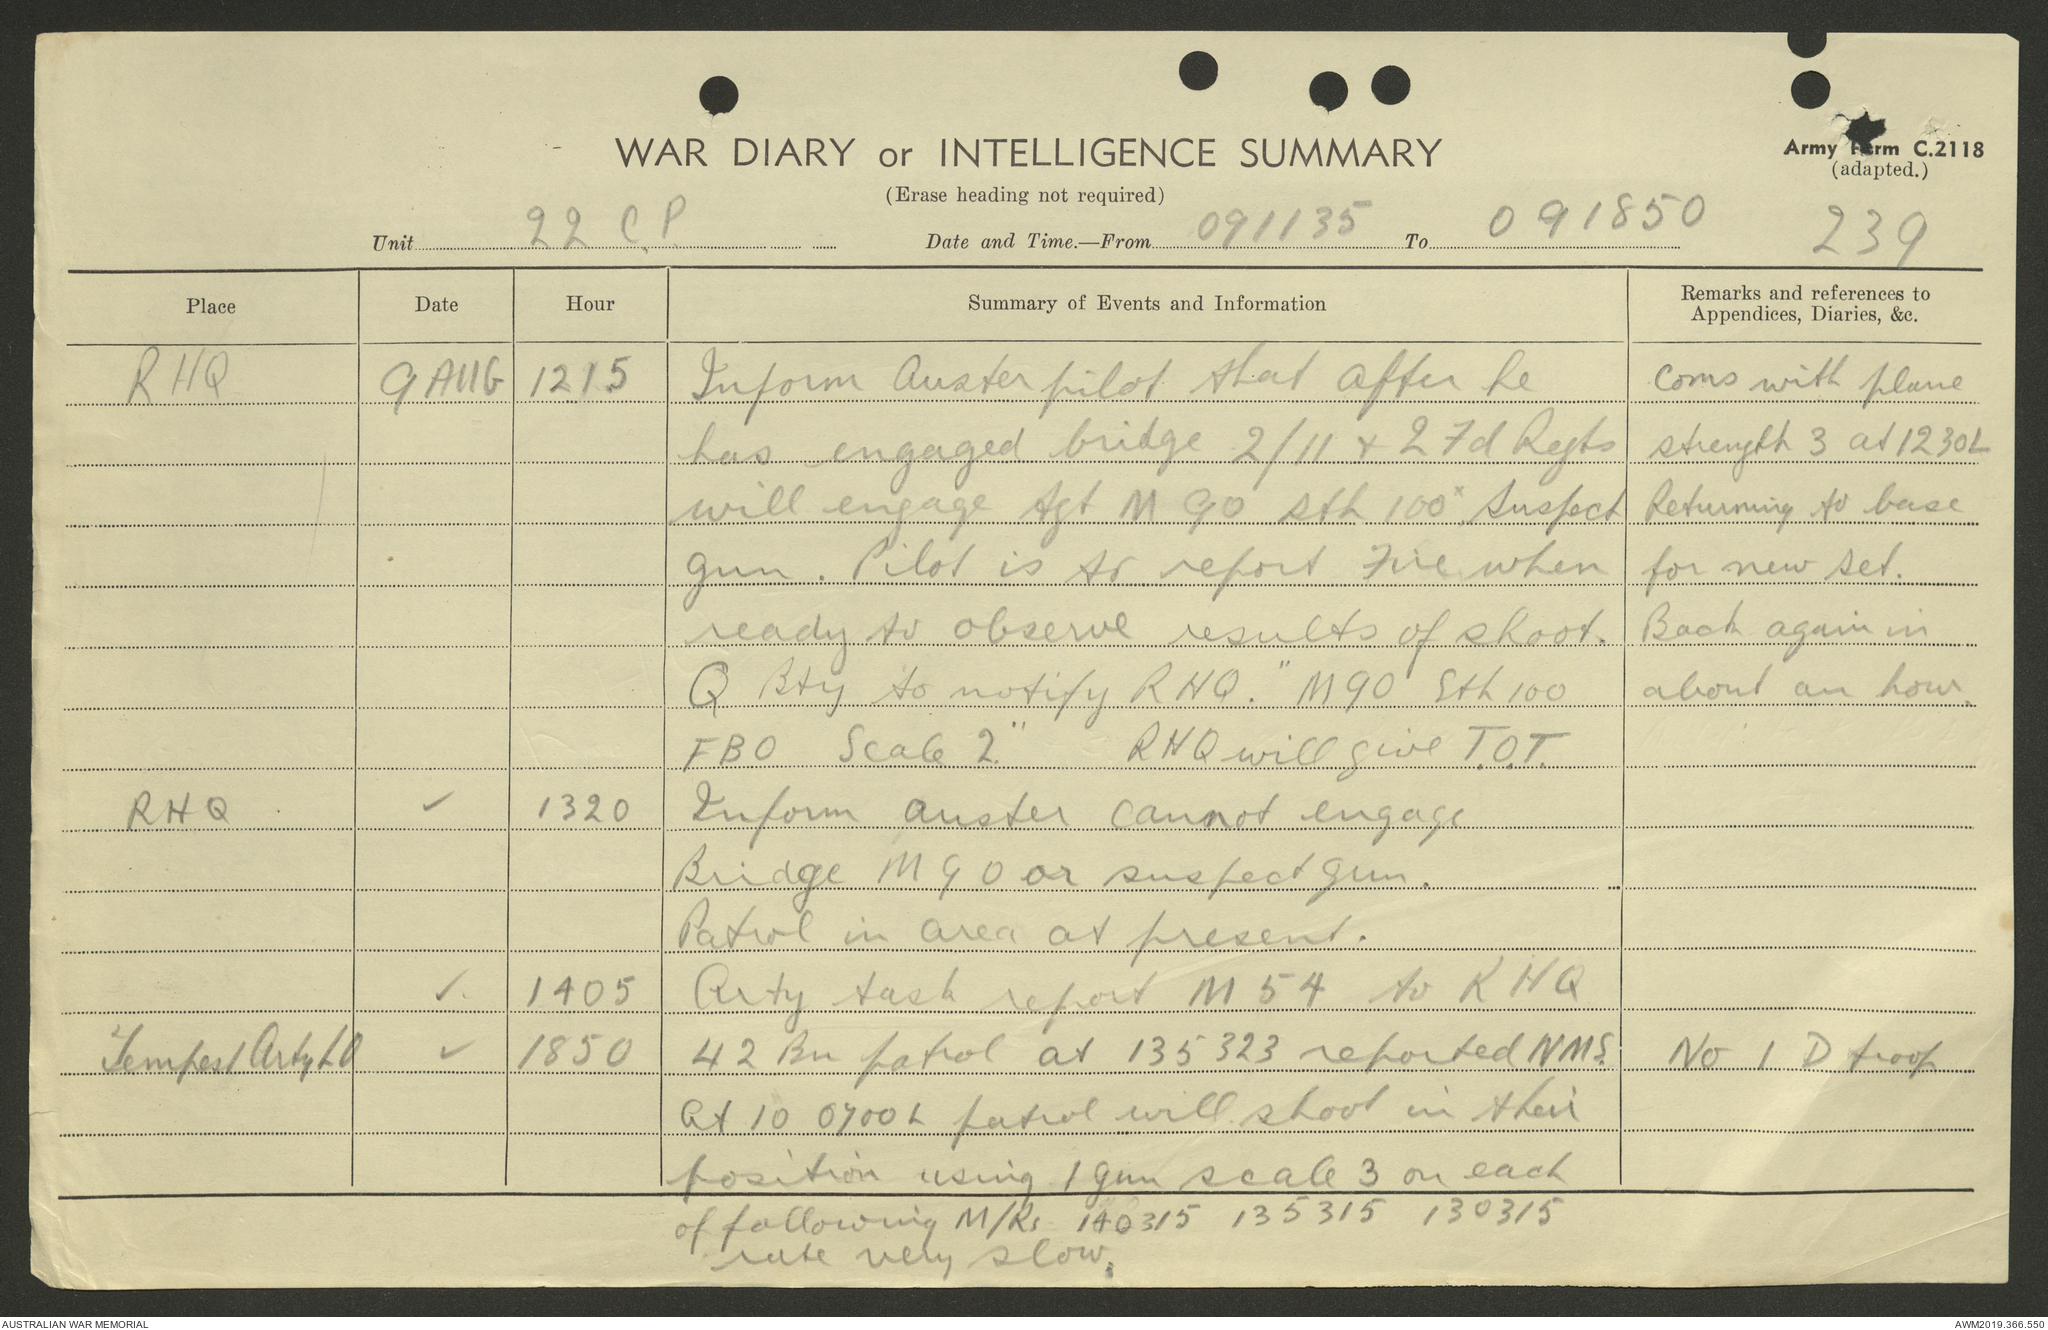 WAR DIARY or INTELLIGENCE SUMMARY
Army Form C.2118
(adapted.)
(Erase heading not required)
Unit 22 C.P. Date and Time.—From 091135 To 091850 239
Place Date Hour Summary of Events and Information Remarks and references to Appendices, Diaries, &c.
RHQ 9 AUG 1215 Inform Auster pilot that after he Coms with plane
has engaged bridge 2/11 + 2 Fd Regts strength 3 at 1230L
will engage tgt M 90 sth 100x Suspect Returning to base
gun. Pilot is to report Fire when for new set.
ready to observe results of shoot. Back again in
Q Bty to notify RHQ. "M90 Sth 100 about an hour.
FBO Scale 2" RHQ will give T.O.T.
RHQ ✓ 1320 Inform auster cannot engage
Bridge M90 or suspect gun.
Patrol in area at present.
✓. 1405 Arty task report M 54 to RHQ
Tempest Arty LO ✓ 1850 42 Bn patrol at 135323 reported NMS. No 1 D troop
At 10 0700L patrol will shoot in their
position using 1 gun scale 3 on each
of following M/Rs 140315 135315 130315
rate very slow.
AUSTRALIAN WAR MEMORIAL AWM2019.366.550